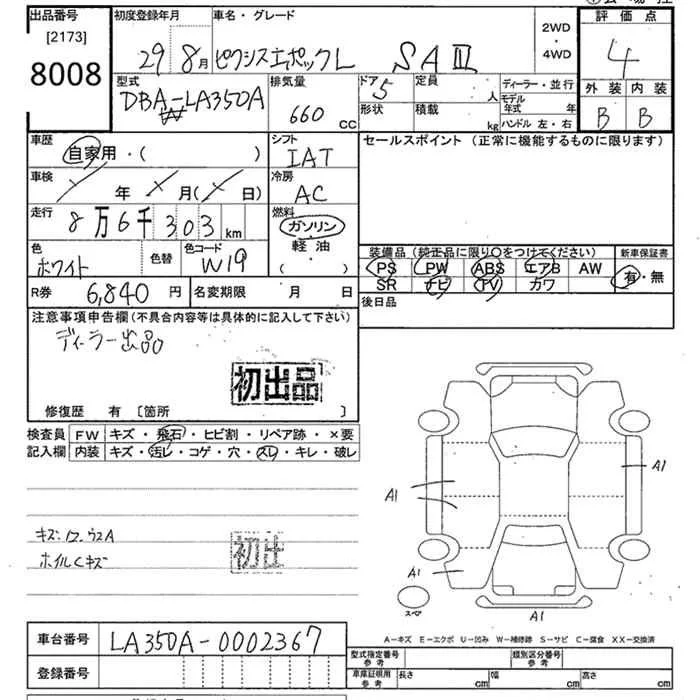 出品番号
[2173]
8008
初度登録年月
29年 8月
車名・グレード
ピクシスエポックL SAⅢ
2WD
・
4WD
評価点
4
外装 内装
B B
型式
DBA-LA350A
排気量
660 cc
ドア
5
形状
定員
人
積載
kg
ディーラー・並行
モデル年式 年
ハンドル 左・右
車歴
自家用・( )
シフト
IAT
セールスポイント (正常に機能するものに限ります)
車検
年 月( 日)
冷房
AC
走行
8万6千303km
燃料
ガソリン
軽油
・
( )
色
ホワイト
色替
色コード
W19
装備品 (純正品に限り○をつけてください)
新車保証書
PS PW ABS エアB AW
SR ナビ TV カワ
有・無
R券 6,840円
名変期限 月 日
後日品
注意事項申告欄(不具合内容等は具体的に記入して下さい)
ディーラー出品
初出品
修復歴 有 [箇所 ]
検査員
記入欄
FW キズ・飛石・ヒビ割・リペア跡・×要
内装 キズ・汚レ・コゲ・穴・スレ・キレ・破レ
A1
A1
A1
A1
スペア
ホイルCキズ
初出
A-キズ E-エクボ U-凹み W-補修跡 S-サビ C-腐食 XX-交換済
車台番号 LA350A-0002367
登録番号
型式指定番号
参考
類別区分番号
参考
車庫証明用
参考
長さ cm
幅 cm
高さ cm